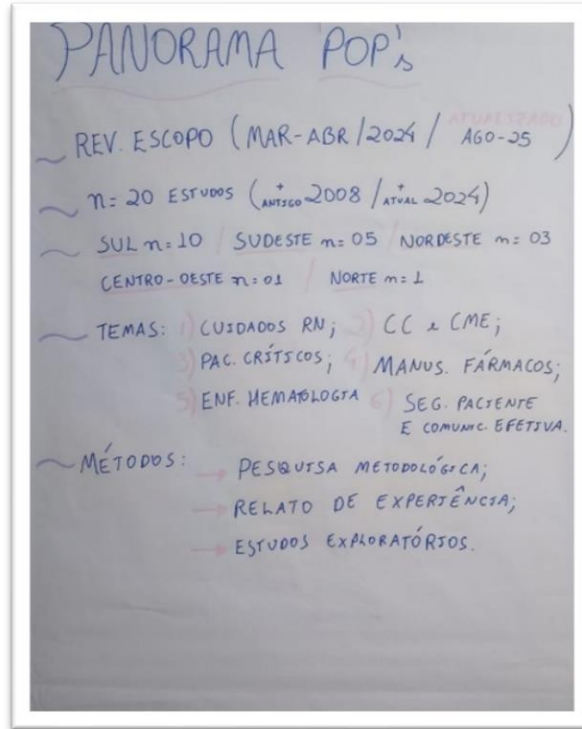 PANORAMA POP's
~ REV. ESCOPO (MAR-ABR/2024 / AGO-25)
~ n= 20 ESTUDOS (+ ANTIGO 2008 / + ATUAL 2024)
~ SUL n=10 / SUDESTE n= 05 / NORDESTE n= 03
CENTRO-OESTE n=01 / NORTE n=1
~ TEMAS: 1) CUIDADOS RN; 2) CC e CME;
3) PAC. CRÍTICOS; 4) MANUS. FÁRMACOS;
5) ENF. HEMATOLOGIA 6) SEG. PACIENTE
E COMUNIC. EFETIVA.
~ MÉTODOS: → PESQUISA METODOLÓGICA;
→ RELATO DE EXPERIÊNCIA;
→ ESTUDOS EXPLORATÓRIOS.